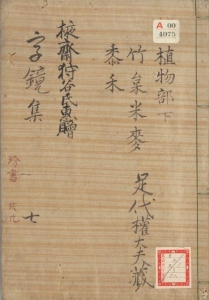 A 00
4075
植物部 下
竹 枲 米 麥
黍 禾
足代權大夫藏
掖齋狩谷氏惠贈
字鏡集
七